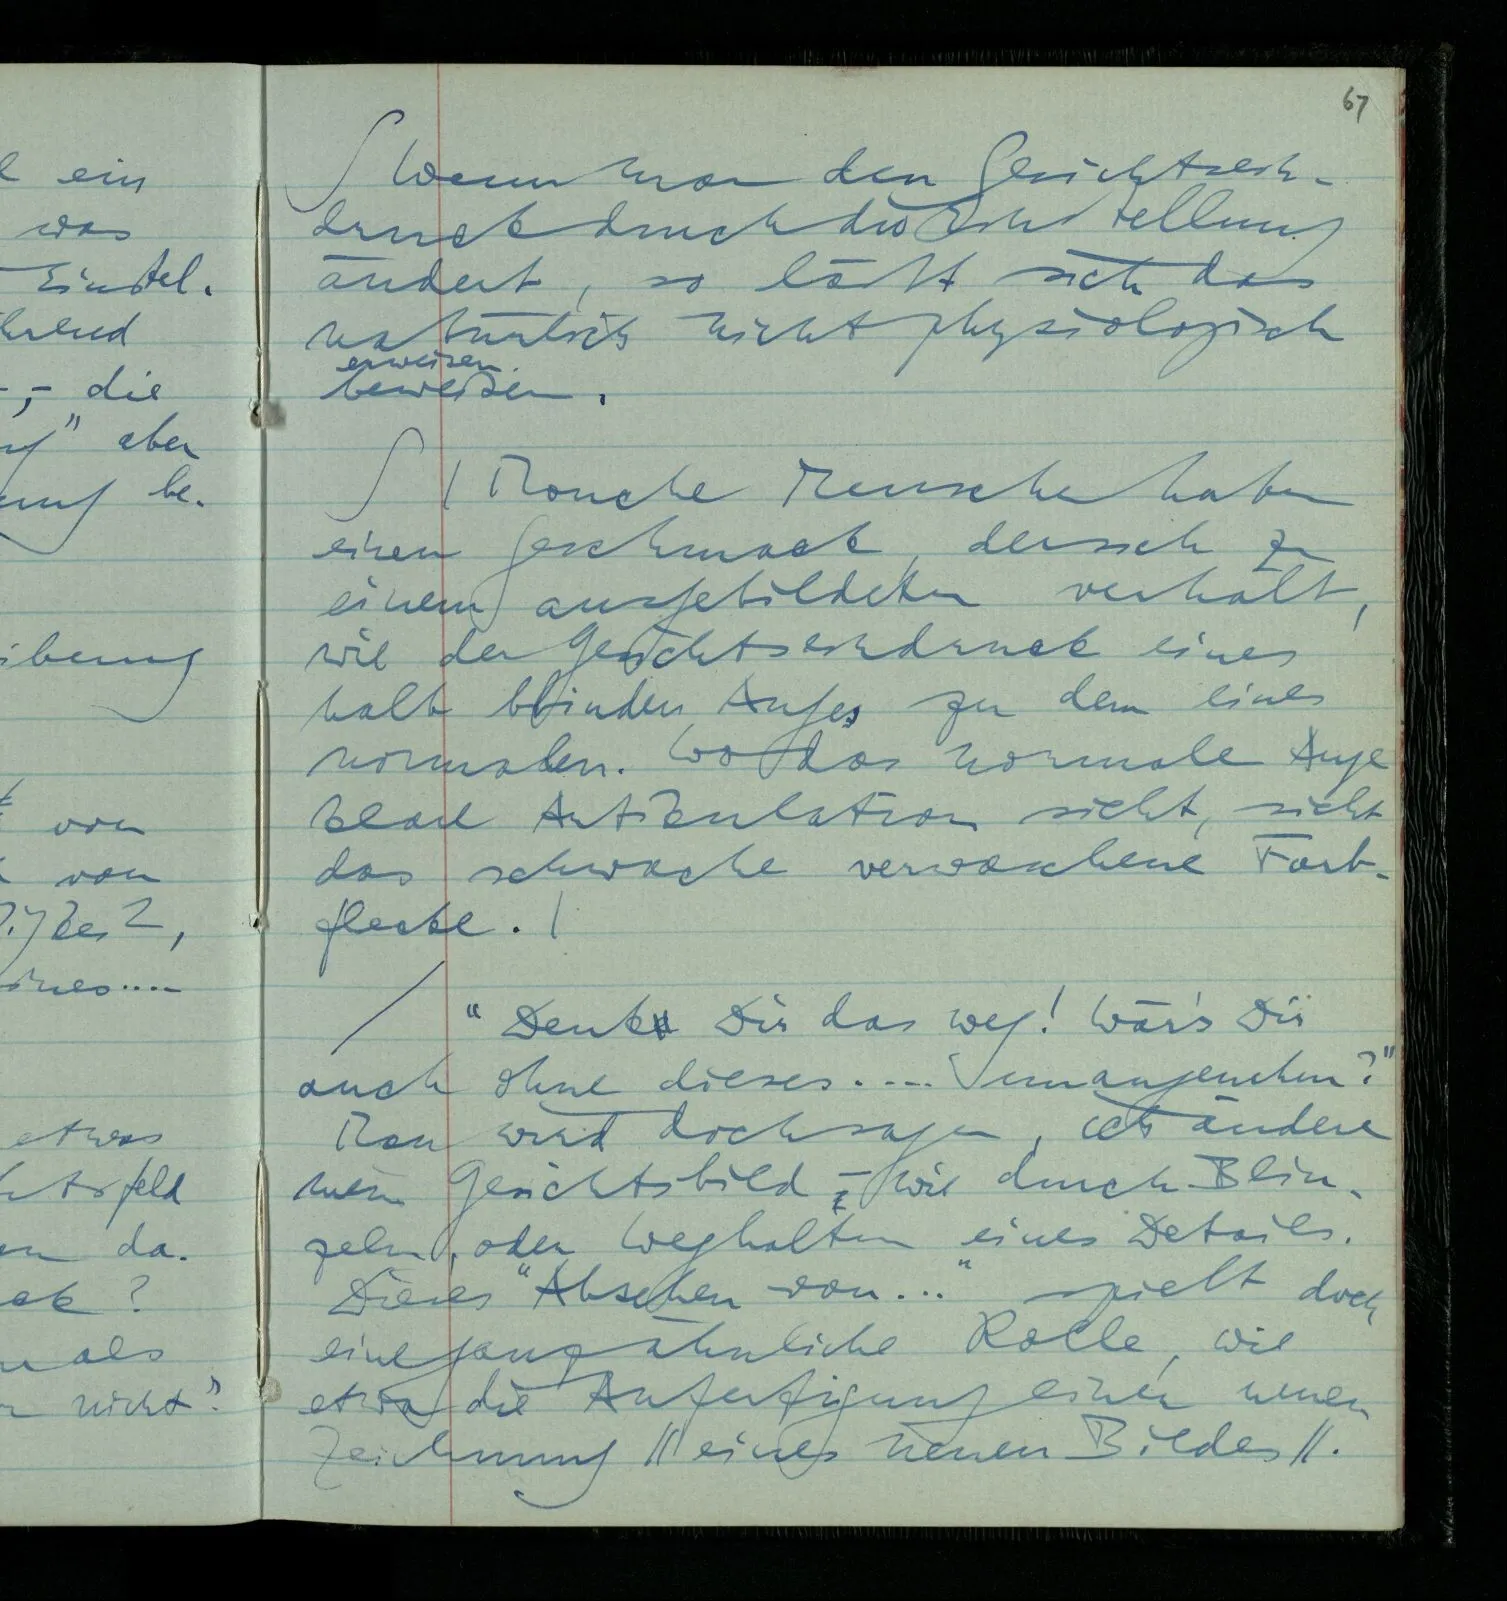 l ein
was
Einstel-
hrend
-,- die
" aber
ung be-
ibung
von
von
ines....
etwas
htsfeld
en da.
ck?
als
nicht?
67
∫ Wenn man den Gesichtsein-
druck durch die Einstellung
ändert, so läßt sich das
natürlich nicht physiologisch
erweisen
beweisen.
∫ | Manche Menschen haben
einen Geschmack, der sich zu
einem ausgebildeten verhält,
wie der Gesichtseindruck eines
halb blinden Auges zu dem eines
normalen. Wo das normale Auge
klare Artikulation sieht, sieht
das schwache verwaschene Farb-
flecke. |
/ "Denk Dir das weg! Wär's Dir
auch ohne dieses.... unangenehm?"
Man wird doch sagen, ich ändere
mein Gesichtsbild - wie durch Blin-
zeln, oder Weghalten eines Details.
Dieses "Absehen von..." spielt doch
eine ganz ähnliche Rolle, wie
etwa die Anfertigung einer neuen
Zeichnung // eines neuen Bildes //.